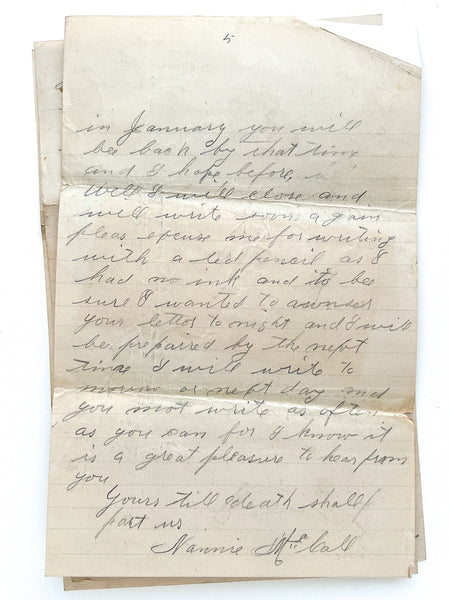 5
in January you will
be back by that time
and I hope before
Well I will close and
will write soon a gain
pleas excuse me for writing
with a led pencil as I
had no ink and to be
sure I wanted to awnser
your letter to night and I will
be prepaired by the next
time I will write to
morrow or next day and
you must write as often
as you can for I know it
is a great pleasure to hear from
you
Yours till death shall
part us
Nannie McCall